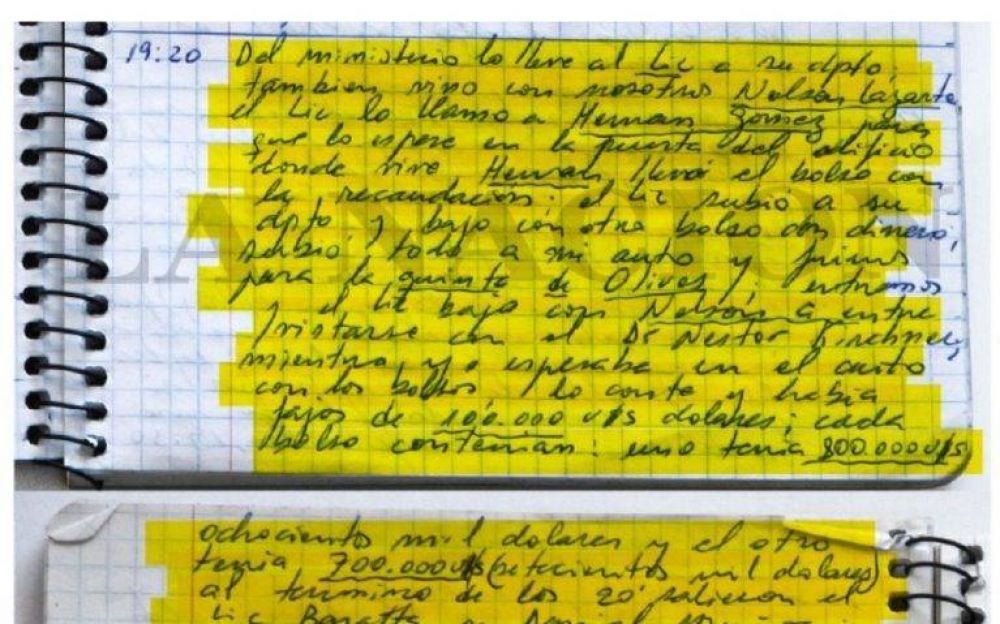 19:20 Del ministerio lo lleve al Lic a su dpto,
tambien vino con nosotros Nelson Lazarte,
el Lic lo llamo a Hernan Gomez para
que lo espere en la puerta del edificio
donde vive Hernan llevó el bolso con
la recaudación; el Lic subio a su
dpto y bajo con otro bolso con dinero,
subio todo a mi auto y fuimos
para la quinta de Olivos; entramos
y el Lic bajo con Nelson a entre
vistarse con el Dr Nestor Kirchner,
mientras yo esperaba en el auto
con los bolsos, lo conte y habia
fajos de 100.000 U$S dolares; cada
bolso contenian: uno tenia 800.000 U$S
LA NACION
ochocientos mil dolares y el otro
tenia 700.000 U$S (setecientos mil dolares)
al termino de los 20' salieron el
Lic Baratta